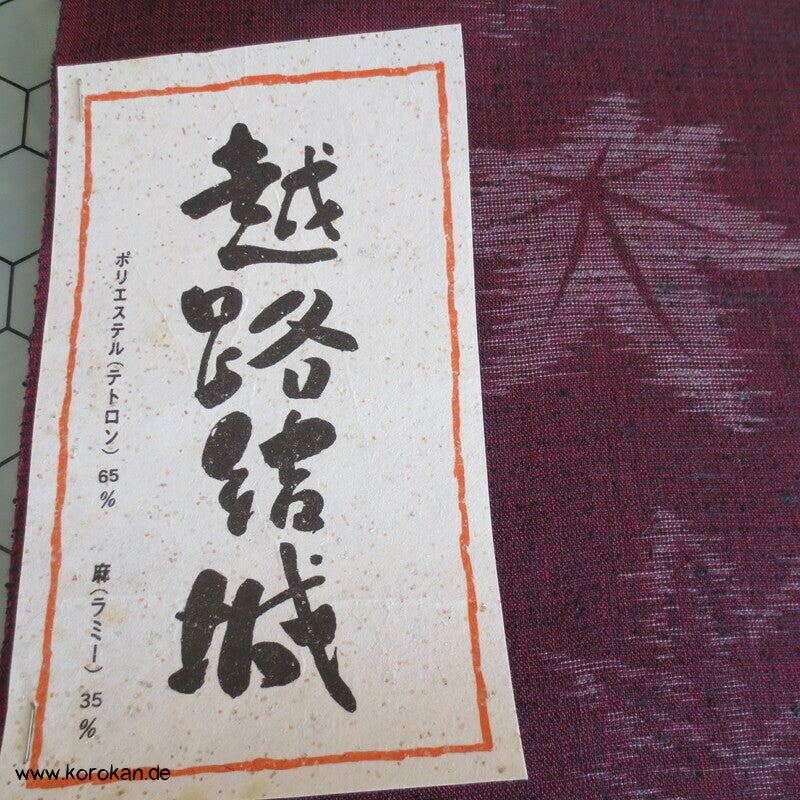 越路結城
ポリエステル(テトロン) 65%
麻(ラミー) 35%
www.korokan.de